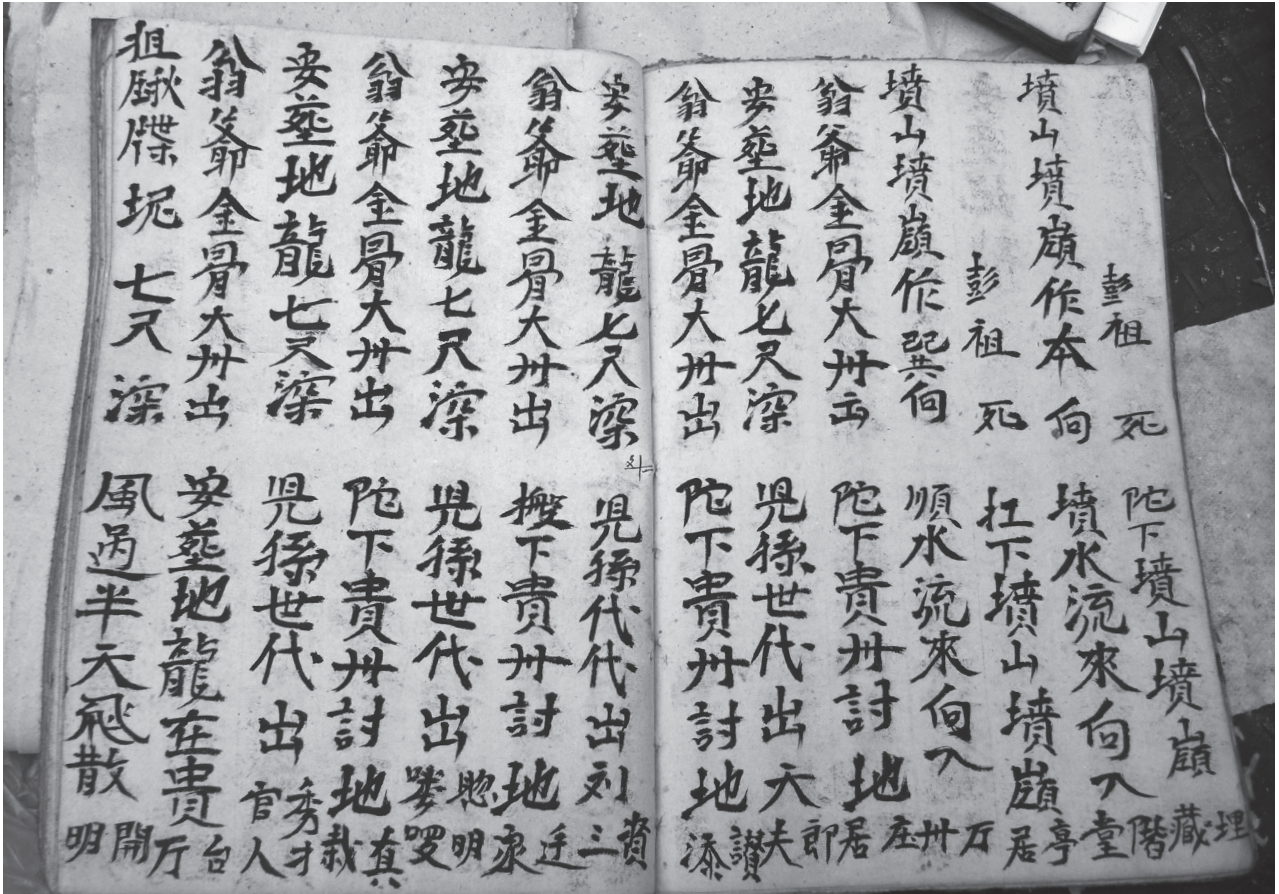 彭祖死 陀下墳山墳嵿 埋藏
墳山墳嵿作本向 墳水流來向入 階堂
彭祖死 扛下墳山墳嵿 亭居
墳山墳嵿作向 順水流來向入 厅卅
翁爺金骨大卅出 陀下貴卅討地 庄居
安葬地龍七尺深 兒孫世代出天 郎夫
翁爺金骨大卅出 陀下貴卅討地 讃添
安葬地龍七尺深 兒孫代代出刘三 資
翁爺金骨大卅出 搬下貴卅討地
安葬地龍七尺深 兒孫世代出 聰明
翁爺金骨大卅出 陀下貴卅討地 真栽
安葬地龍七尺深 兒孫世代出 秀才官人
翁爺金骨大卅出 安葬地龍在貴 台厅
狙鍬坭七尺深 風过半天飛散 開明